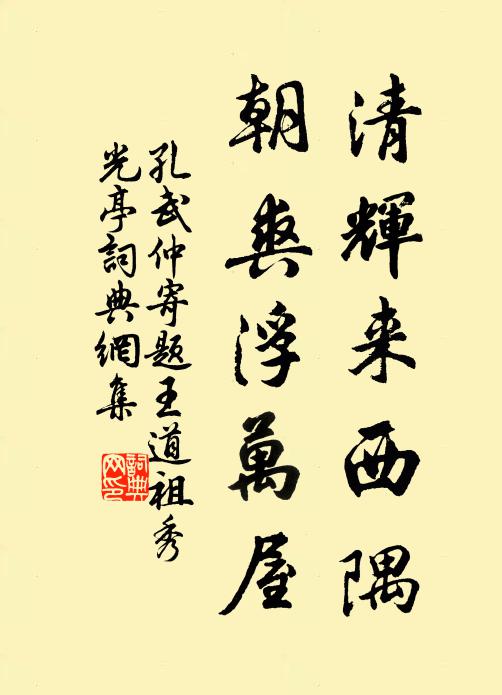 清輝来西隅
朝爽浮萬屋
孔武仲寄題王道祖秀
光亭詞典網集
詞典
网印